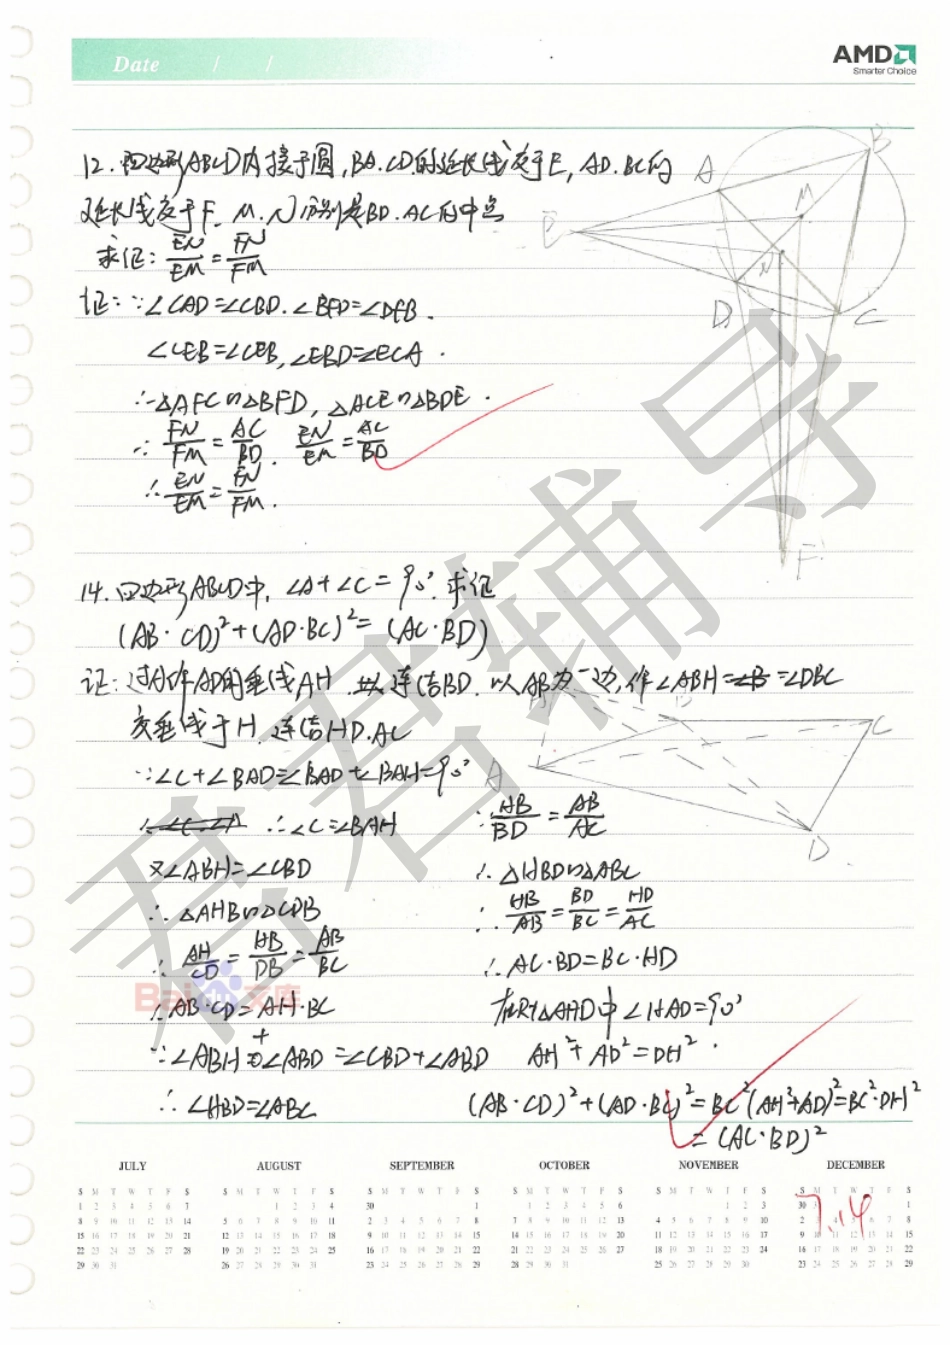 Date / /
AMD
Smarter Choice
12. 四边形ABCD内接于圆,BA.CD.的延长线交于E, AD.BC的
延长线交于F. M.N分别是BD.AC的中点
求证: EN/EM = FN/FM
证: ∵∠CAD=∠CBD. ∠BFD=∠DFB.
∠CEB=∠CEB, ∠EBD=∠ECA.
∴△AFC∽△BFD, △ACE∽△BDE.
∴ FN/FM = AC/BD. EN/EM = AC/BD
∴ EN/EM = FN/FM.
A B E M N D C F
14. 四边形ABCD中, ∠A+∠C=90°. 求证
(AB·CD)²+(AD·BC)²=(AC·BD)
证: 过A作AD的垂线AH. 连结BD. 以AB为一边,作∠ABH=∠DBC
交垂线于H. 连结HD.AC
∵∠C+∠BAD=∠BAD+∠BAH=90°
∴∠C=∠BAH
又∠ABH=∠CBD
∴△AHB∽△CDB
∴ AH/CD = HB/DB = AB/BC
∴AB·CD=AH·BC
∵∠ABH+∠ABD=∠CBD+∠ABD
∴∠HBD=∠ABC
∵ HB/BD = AB/AC
∴△HBD∽△ABC
∴ HB/AB = BD/BC = HD/AC
∴AC·BD=BC·HD
在Rt△AHD中∠HAD=90°
AH²+AD²=DH².
(AB·CD)²+(AD·BC)²=BC²(AH²+AD)²=BC²·DH²
=(AC·BD)²
A C D
君君辅导
Bai 文库
JULY AUGUST SEPTEMBER OCTOBER NOVEMBER DECEMBER
7.14